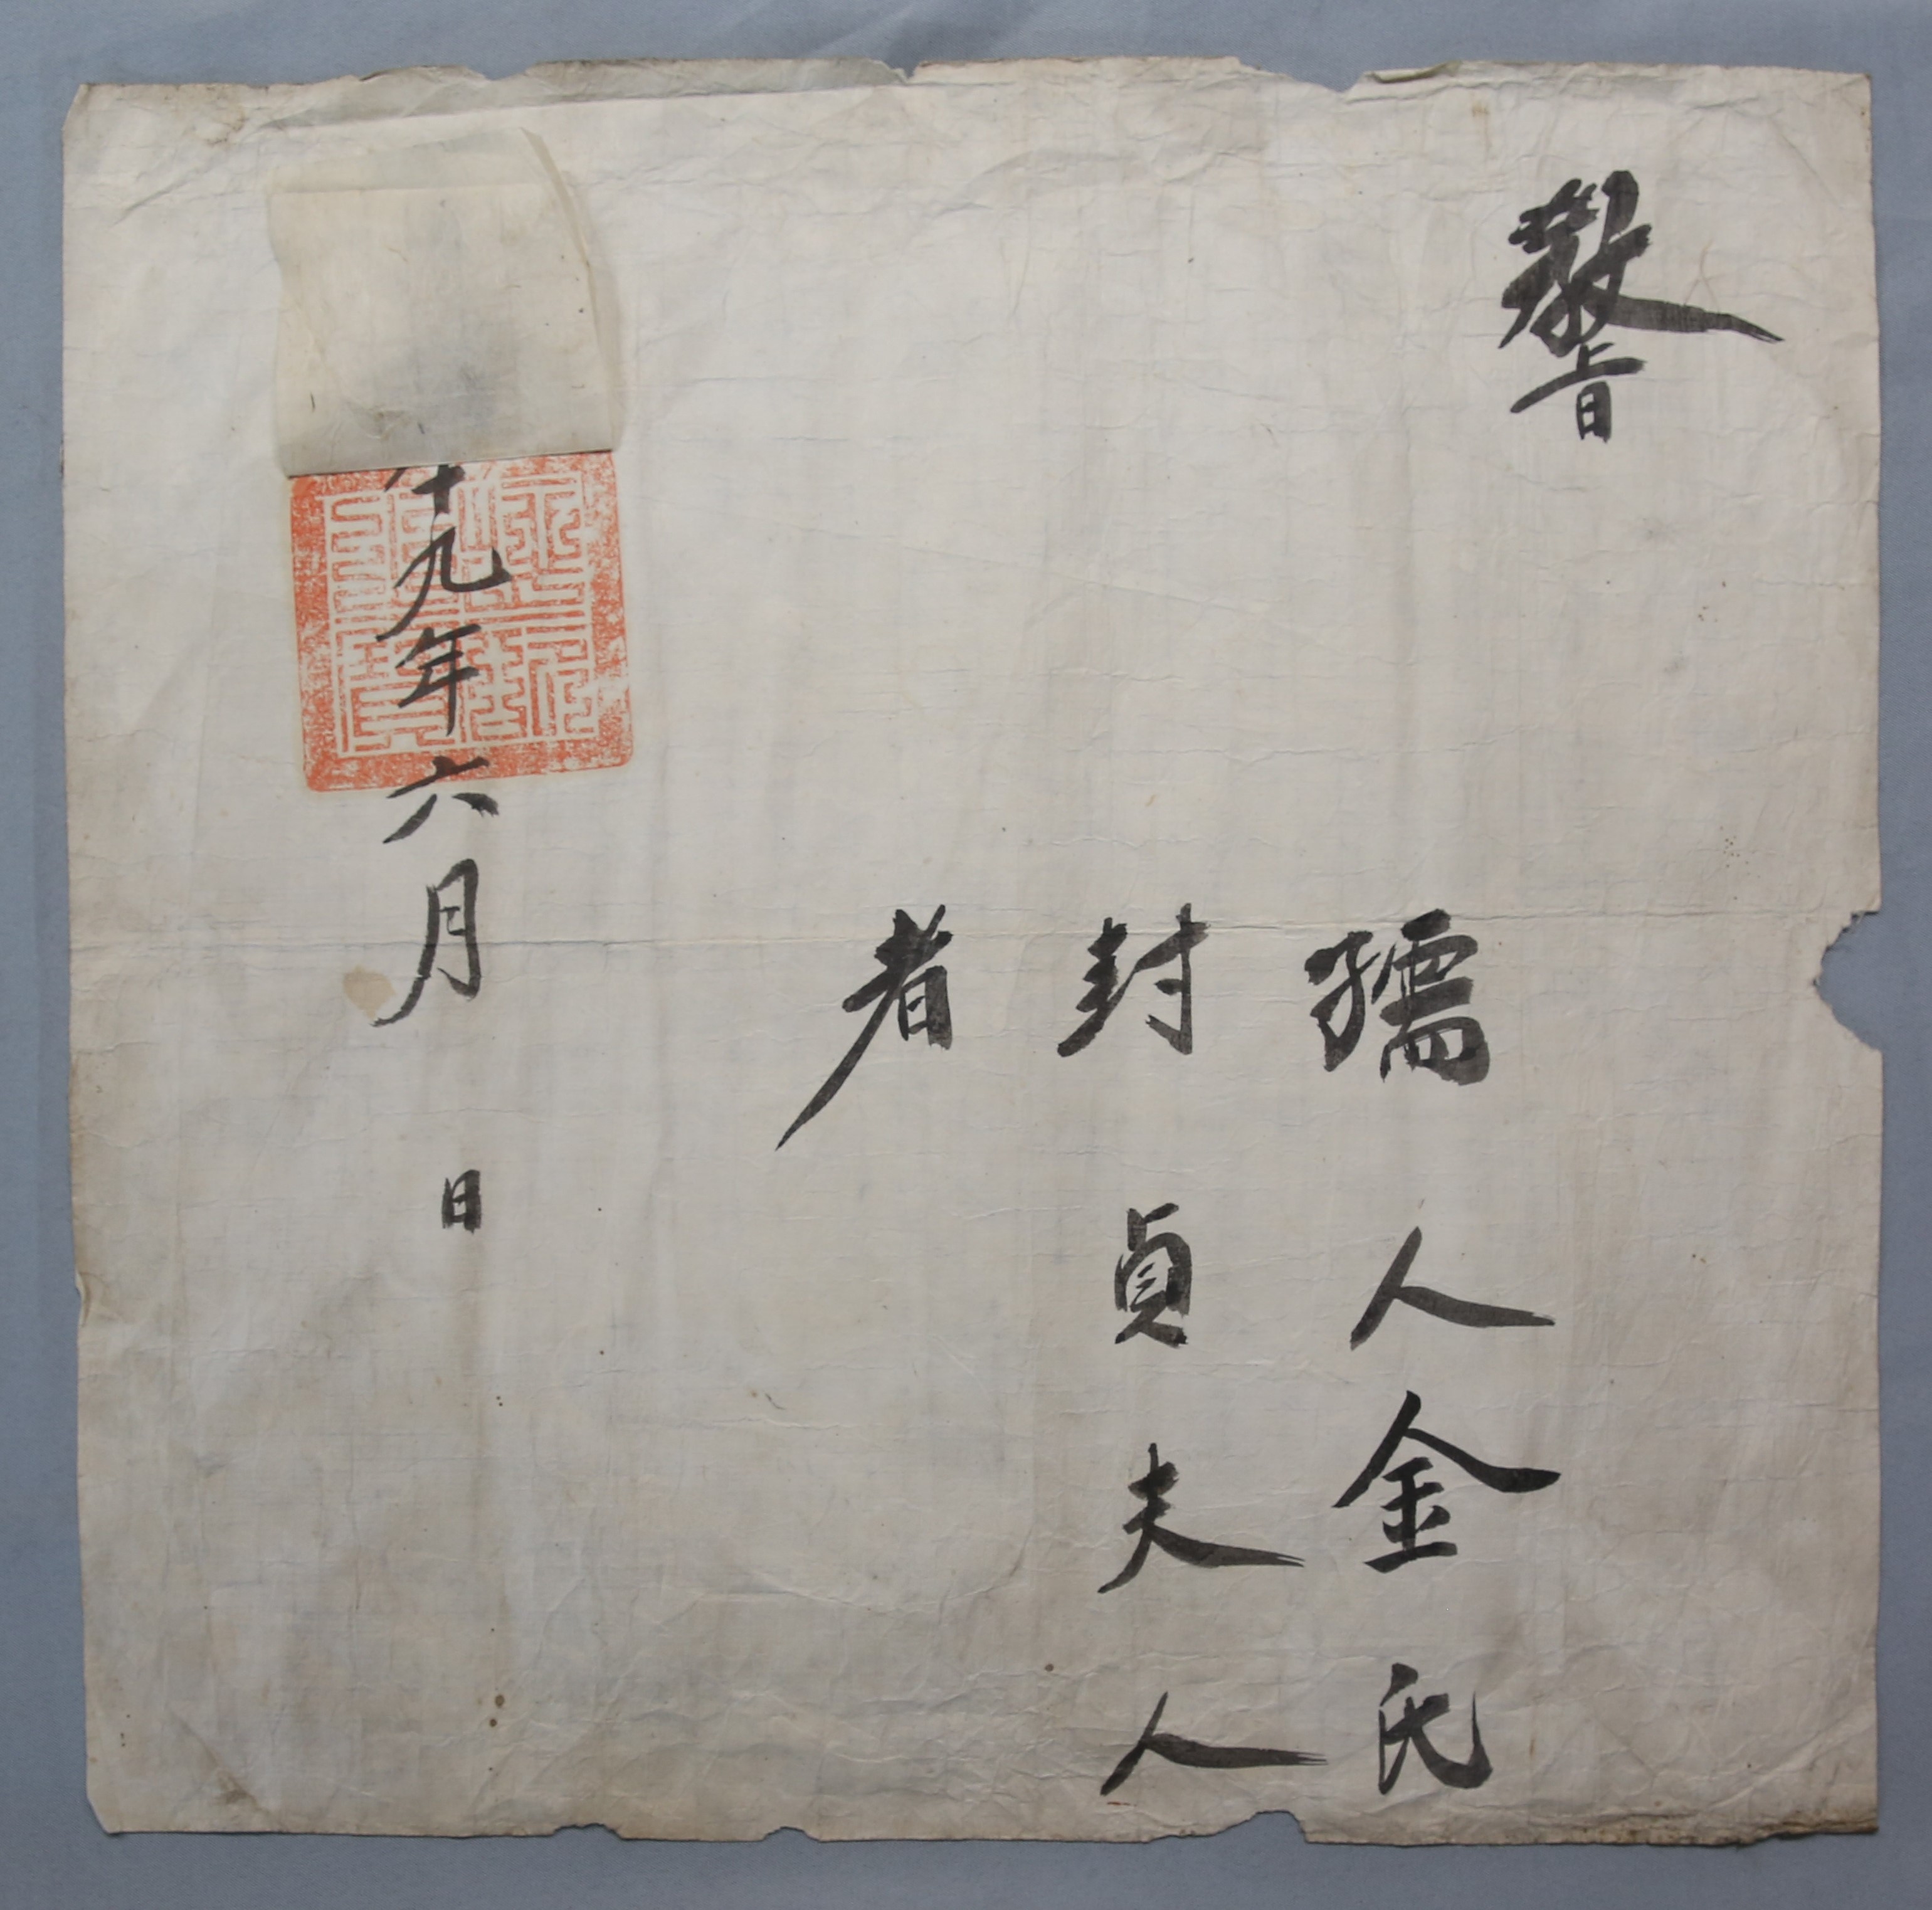 敎旨
孺人金氏
封貞夫人
者
十九年六月 日